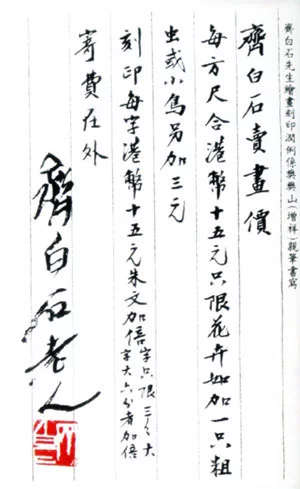 齊白石先生繪畫刻印潤例係樊樊山(增祥)親筆書寫
齊白石賣畫價
每方尺合港幣十五元只限花卉如加一只粗
虫或小鳥另加三元
刻印每字港幣十五元朱文加倍字只限三分大
字大六分者加倍
寄費在外
齊白石老人